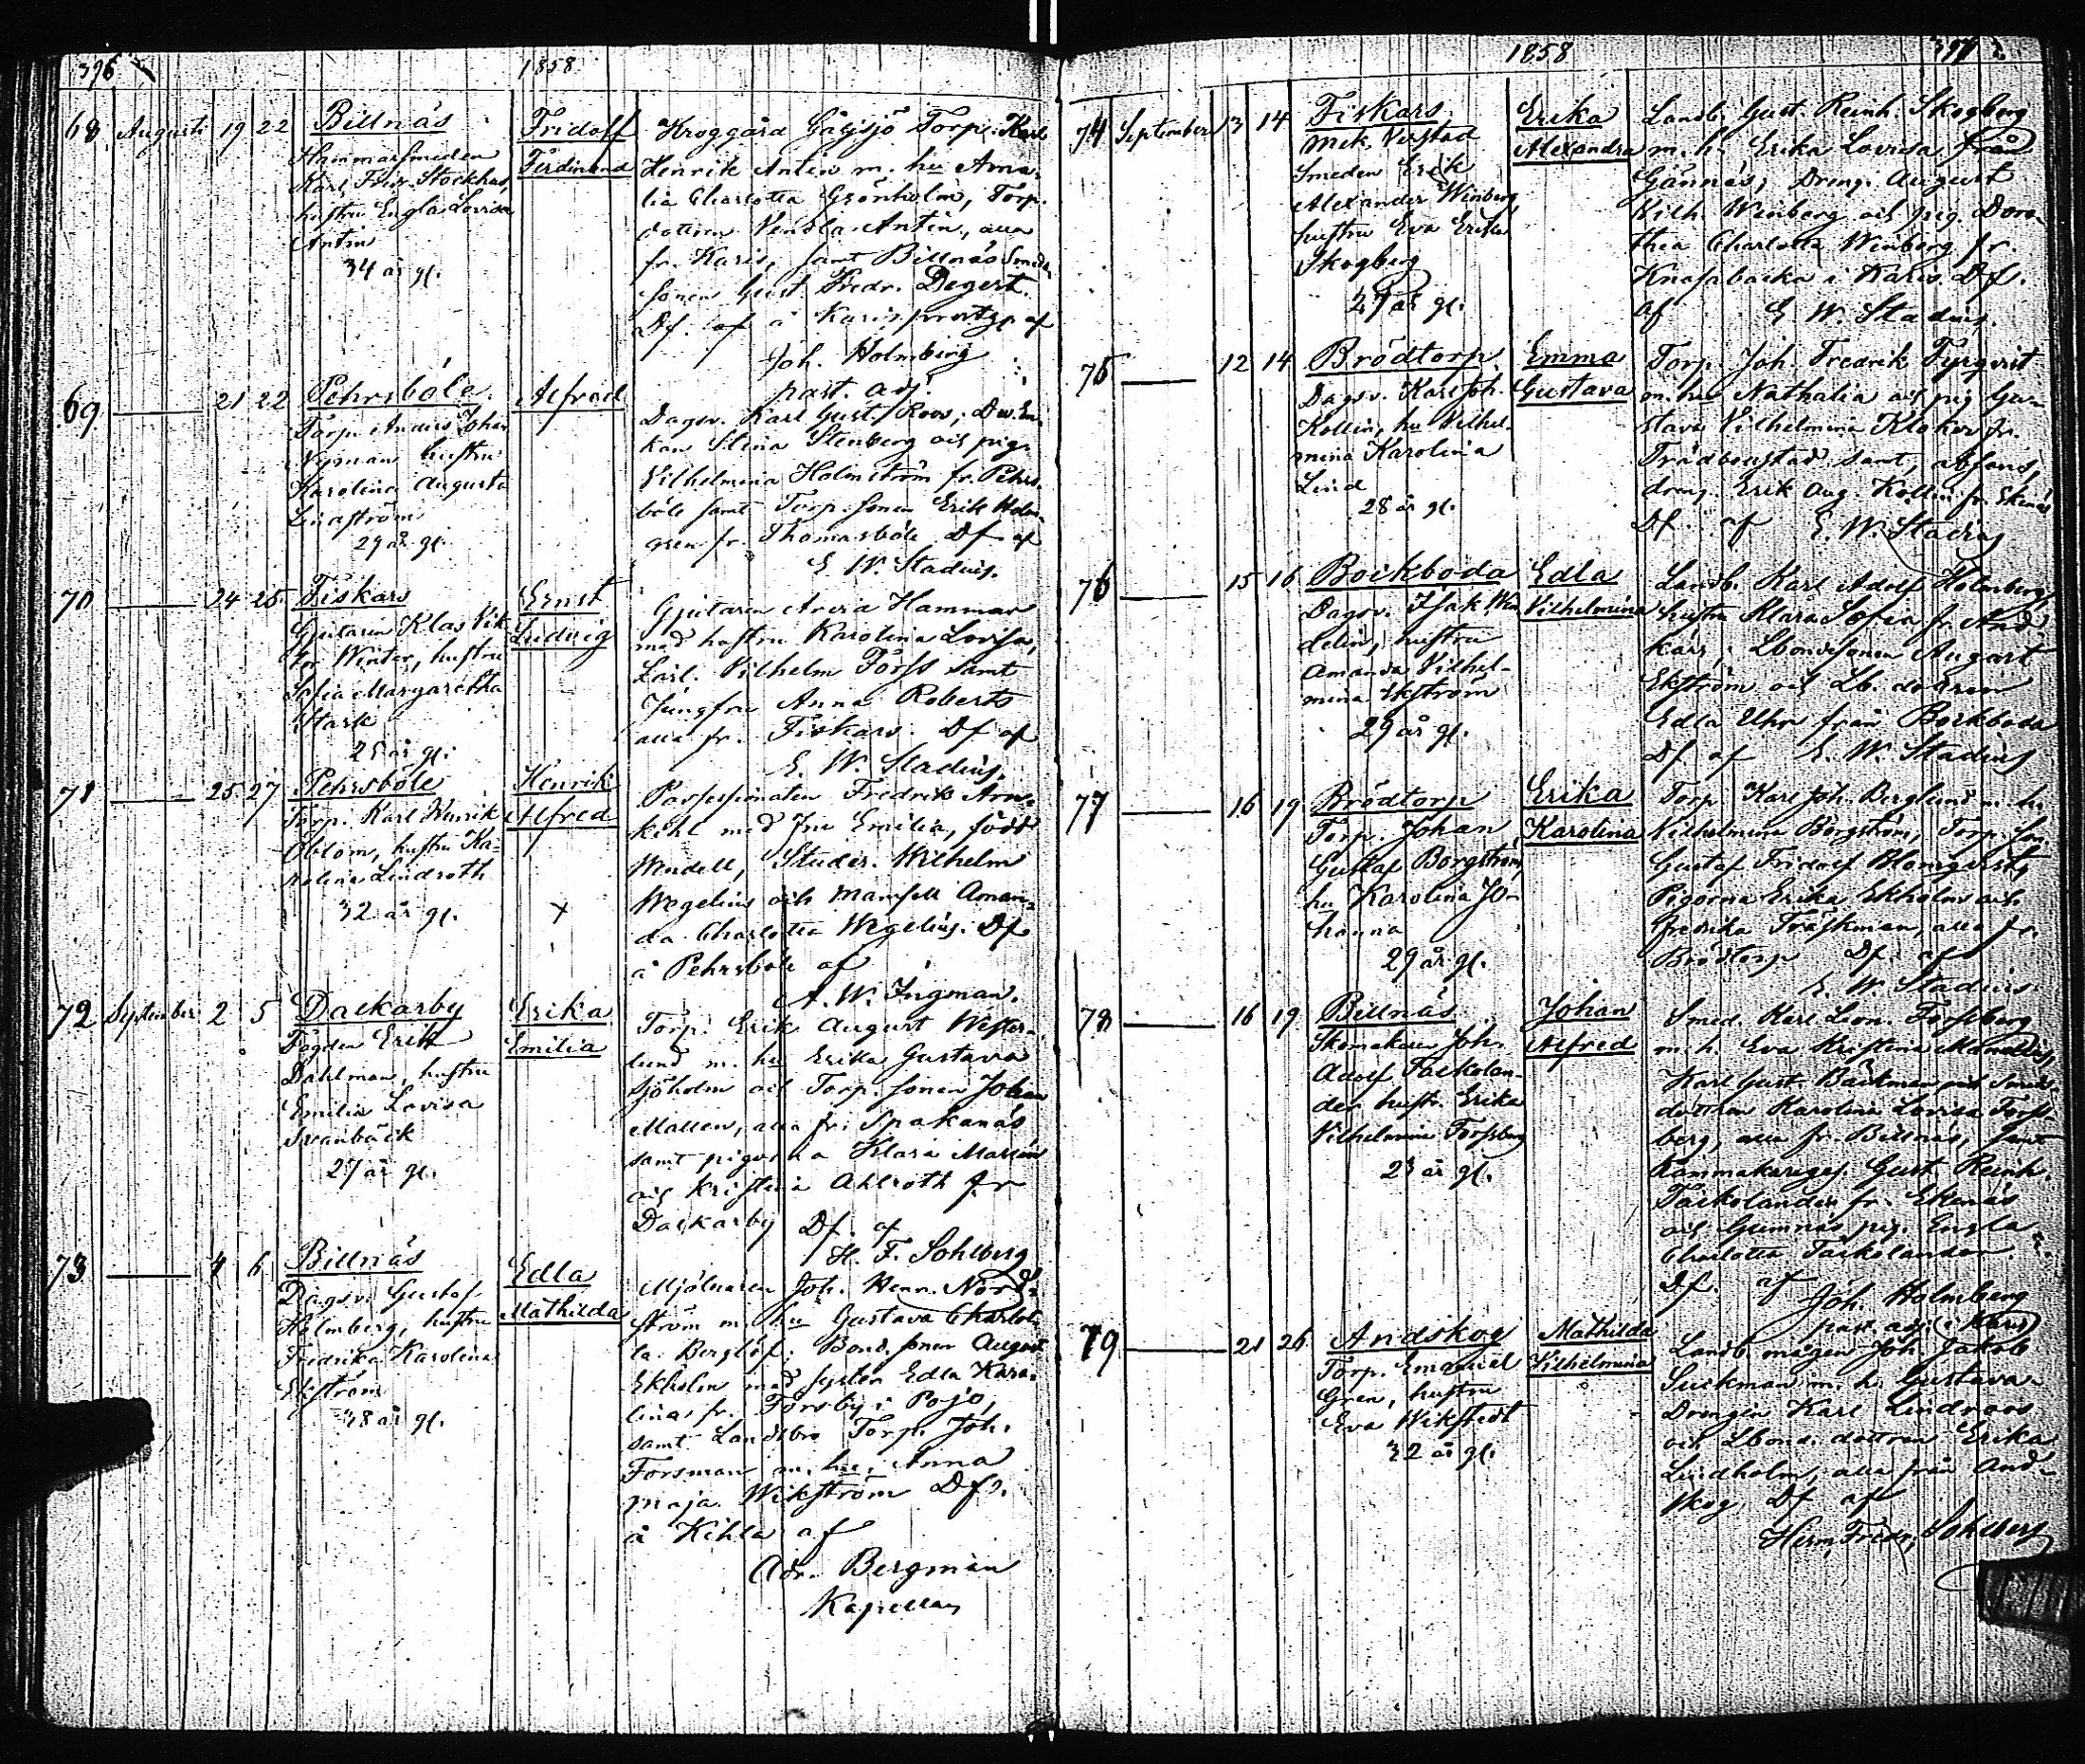 396
1858
68 Augusti 19 22 Billnäs
Hammarsmeden
Karl Fredr. Stockhus,
hustru Engla Lovisa
Antin
34 år gl.
Fridolf
Ferdinand
Kroggård Torp. Karl
Henrik Antin m. hu Ama-
lia Charlotta Grönholm, Torp.
dottren Vendla Antin, alla
fr. Karis, samt Billnäs Smeds
sonen Gust. Fredr. Degert.
Df. af å Karis prostg. af
Joh. Holmberg
past. adj.
69 21 22 Pehrsböle
Torp. Anders Johan
Nyman hustru
Karolina Augusta
Lindström
29 år gl.
Alfred
Dagsv. Karl Gust. Roos; Dw. En-
kan Stina Stenberg och pig.
Vilhelmina Holmström fr. Pehrs-
böle samt Torp. sonen Erik Holm-
gren fr. Thomasböle Df. af
E. W. Stadius.
70 24 25 Fiskars
Gjutaren Klas Vik-
tor Winter, hustru
Sofia Margaretha
Stark
25 år gl.
Ernst
Ludvig
Gjutaren Hammar
med hustru Karolina Lovisa,
Lärl. Vilhelm Forss samt
Jungfru Anna Roberts
alla fr. Fiskars. Df. af
E. W. Stadius.
71 25 27 Pehrsböle
Torp. Karl Henrik
Öblom, hustru Ka-
rolina Lindroth
32 år gl.
Henrik
Alfred
X
Possessionaten Fredrik Arn-
kihl med fru Emilia, född
Wendell, Studer. Wilhelm
Wegelius och Mamsell Aman-
da Charlotta Wegelius. Df.
å Pehrsböle af
A. W. Ingman.
72 September 2 5 Dalkarby
Fogden Erik
Dahlman, hustru
Emilia Lovisa
Svanbäck
27 år gl.
Erika
Emilia
Torp. Erik August Wester-
lund m. hu Erika Gustava
Sjöholm och Torp. sonen Johan
Mallen, alla fr. Spakanäs
samt pigorna Klara Martin
och Kristina Ahlroth fr
Dalkarby Df. af
H. F. Sohlberg
73 4 6 Billnäs
Dagsv. Gustaf
Holmberg, hustru
Fredrika Karolina
Ekström
38 år gl.
Edla
Mathilda
Mjölnaren Joh. Henr. Nord-
ström m. hu Gustava Charlot-
ta Berglöf; Bond. sonen August
Ekholm med syster Edla Karo-
lina fr. Forsby i Pojo,
samt Landsbro Torp. Joh.
Forsman m. hu. Anna
Maja Wikström Df.
å Kihla af
Adr. Bergman
Kapellan
1858
397
74 September 13 14 Fiskars
Mek. Verstad
Smeden Erik
Alexander Winberg,
hustru Eva Erika
Skogberg
27 år gl.
Erika
Alexandra
Landb. Gust. Reinh. Skogberg
m. h. Erika Lovisa från
Gännäs; Dreng. August
Wilh. Winberg och pig. Doro-
thea Charlotta Winberg fr.
Knapabacka i Karis. Df.
af E. W. Stadius.
75 12 14 Brödtorp
Dagsv. Karl Joh.
Kollin, hu Vilhel-
mina Karolina
Lind
28 år gl.
Emma
Gustava
Torp. Joh. Fredrik Fyrqvist
m. hu Nathalia och pig Gu-
stava Vilhelmina Kloker fr.
Trädbollstad samt
dreng. Erik Aug. Kollin fr. Ekenäs
Df. af E. W. Stadius
76 15 16 Bockboda
Dagsv. Isak Wen-
delin, hustru
Amanda Vilhel-
mina Ekström
29 år gl.
Edla
Vilhelmina
Landb. Karl Adolf Holmberg,
hustru Klara Sofia fr. And-
kärr; Lbondesonen August
Ekström och Lb. dottren
Edla Uhr från Bockboda
Df. af E. W. Stadius
77 16 19 Brödtorp
Torp. Johan
Gustaf Borgström,
hu Karolina Jo-
hanna
29 år gl.
Erika
Karolina
Torp. Karl Joh. Berglund m. hu
Vilhelmina Borgström, Torp. son.
Gustaf Fridolf Blomqvist,
Pigorna Erika Ekholm och
Fredrika Träskman, alla fr.
Brödtorp Df. af
E. W. Stadius
78 16 19 Billnäs
Skomakaren Joh.
Adolf Tackolan-
der hustr. Erika
Vilhelmina Forssberg
23 år gl.
Johan
Alfred
Smed. Karl Leon. Forssberg
m. h. Eva Kristina Mandelin,
Karl Gust. Bäckman och Smeds-
dottren Karolina Lovisa Forss-
berg, alla fr. Billnäs, samt
Kammakareges. Gust. Reinh.
Tackolander fr. Ekenäs
och Gumnäs pig. Engla
Charlotta Tackolander
Df. af Joh. Holmberg
past. adj. i Karis
79 21 26 Andskog
Torp. Emanuel
Gren, hustru
Eva Wikstedt
32 år gl.
Mathilda
Vilhelmina
Landb. mågen Joh. Jakob
Suckman m. h. Gustava
Drengen Karl Lindroos
och Lbond. dottren Erika
Lindholm, alla från And-
skog Df. af
Herm. Fredr. Sohlberg